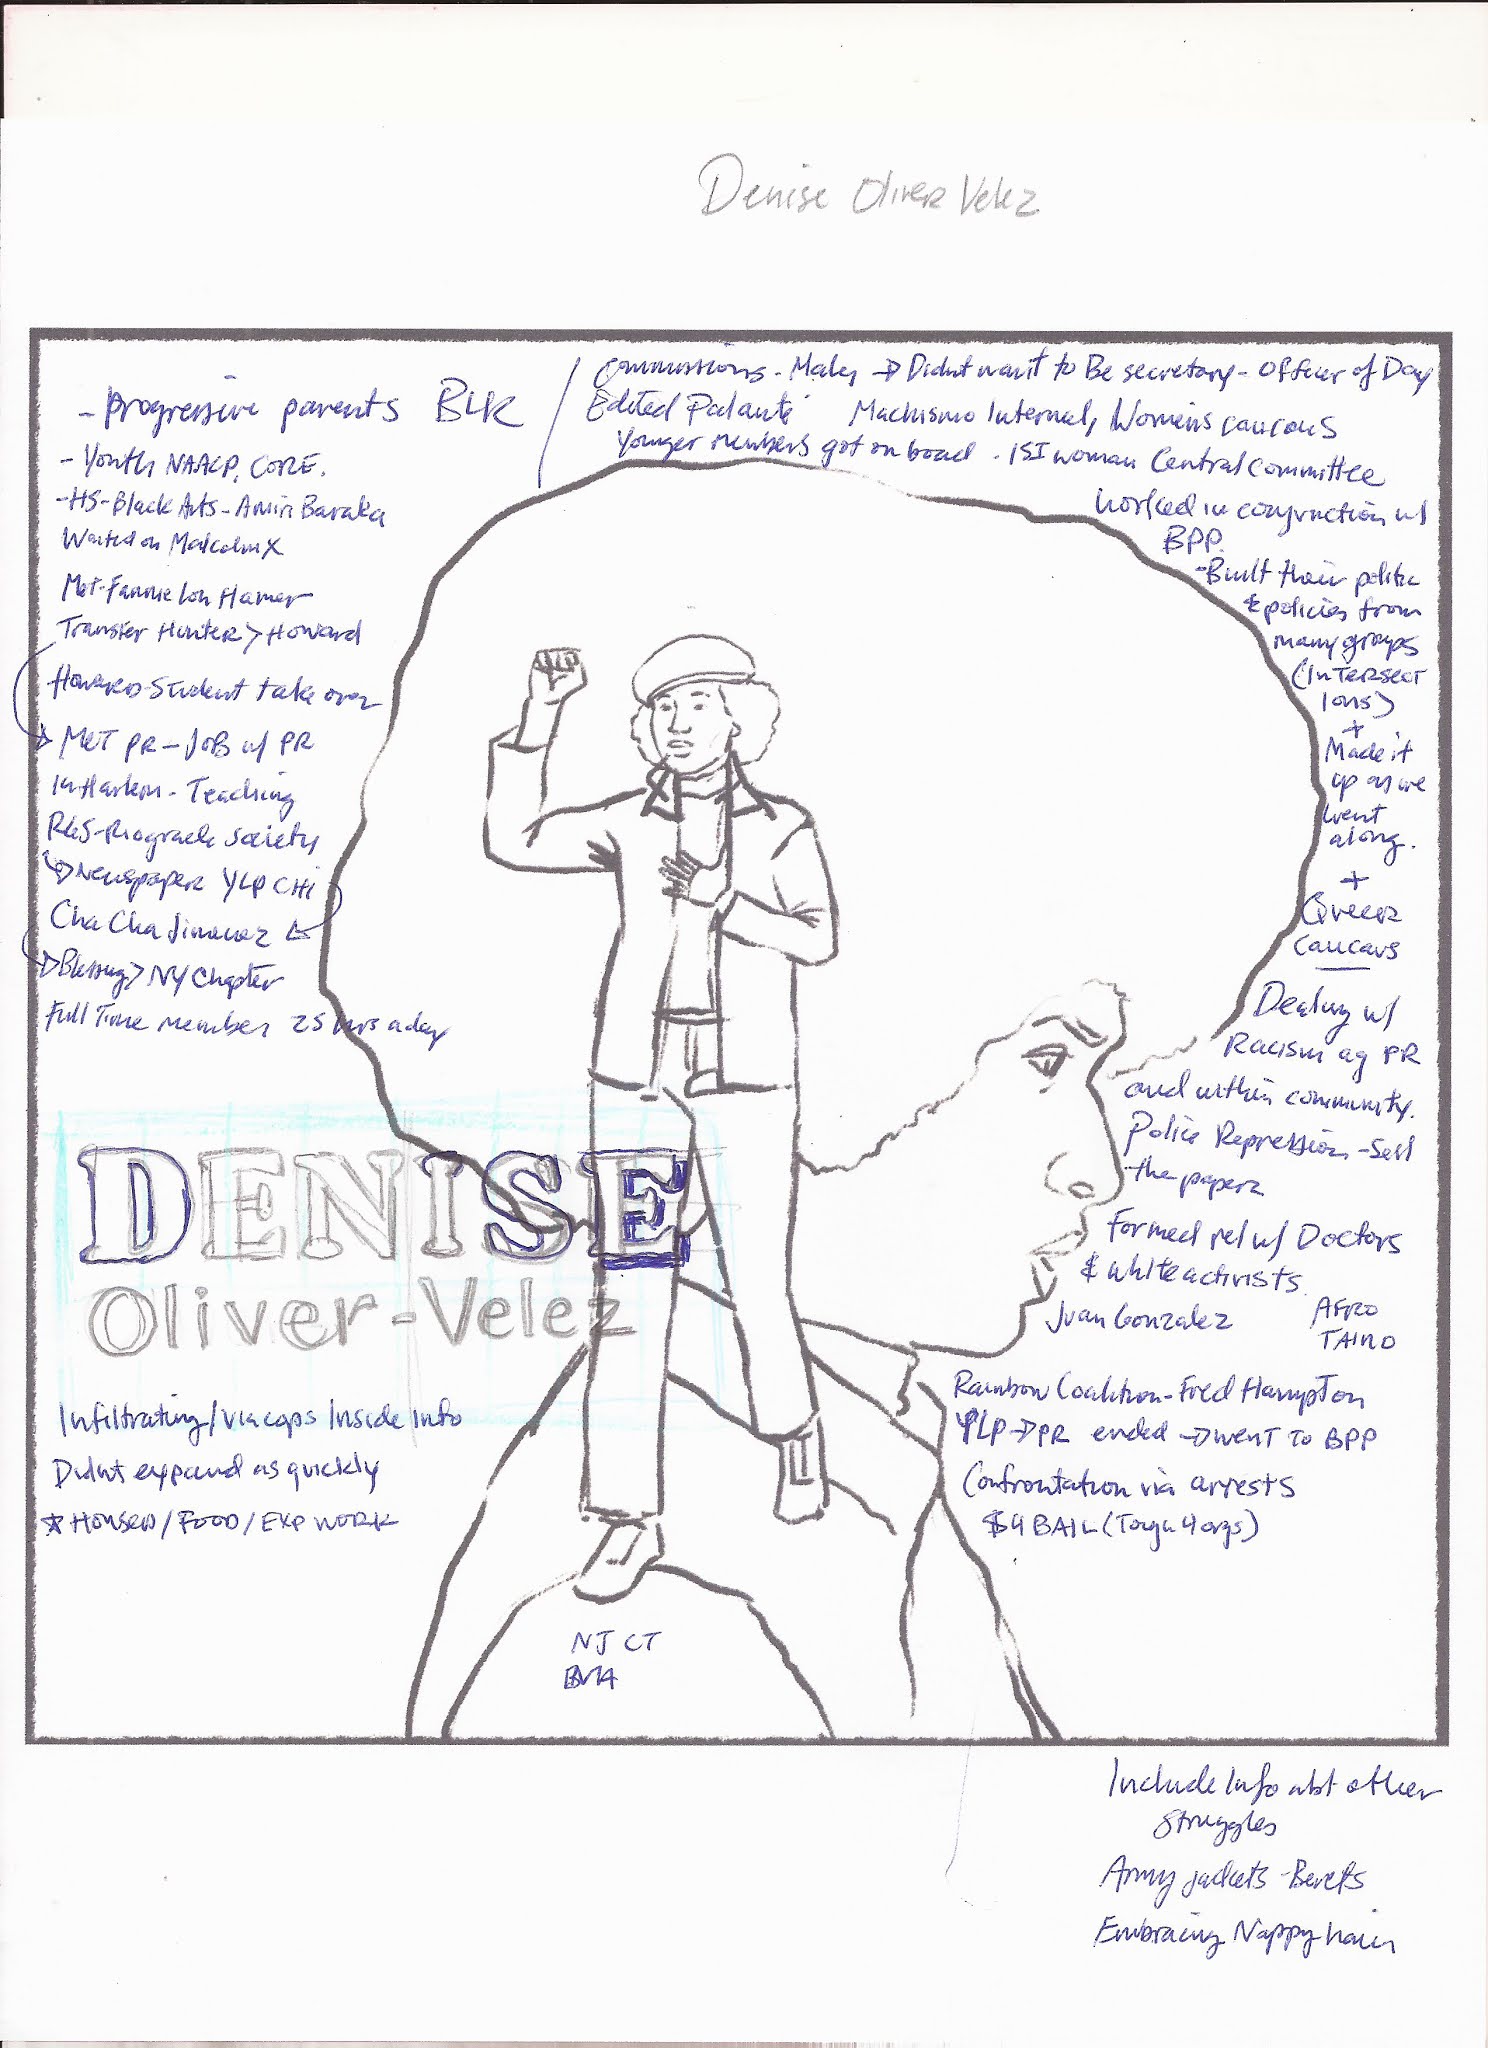 Denise Oliver Velez
- Progressive parents BLK
- Youth NAACP, CORE.
- HS - Black Arts - Amiri Baraka
Waited on Malcolm X
Met - Fannie Lou Hamer
Transfer Hunter > Howard
Howard Student take over
Met PR - Job w/ PR
In Harlem - Teaching
RGS - Society
Newspaper YLP CHI
Cha Cha Jimenez
Blessing > NY Chapter
Full Time member 25 hrs a day
DENISE
Oliver-Velez
Infiltrating / via cops Inside Info
Didnt expand as quickly
* Housed / FOOD / EXP WORK
Commissions - Males → Didnt want to Be secretary - Officer of Day
Edited Palante Machismo Internal, Womens caucous
Younger members got on board - 1st woman Central Committee
Worked in conjunction w/
BPP.
- Built their politic
& policies from
many groups
(Intersect
ions)
+
Made it
up as we
went
along.
+
Queer
Caucaus
Dealing w/
Racism ag PR
and within community.
Police Repression - Sell
the paper
Formed rel w/ Doctors
& white activists.
Juan Gonzalez
AFRO
TAINO
Rainbow Coalition - Fred Hampton
YLP → PR ended → went to BPP
Confrontation via arrests
BAIL
NJ CT
Include Info abt other
Struggles
Army jackets - Berets
Embracing Nappy hair